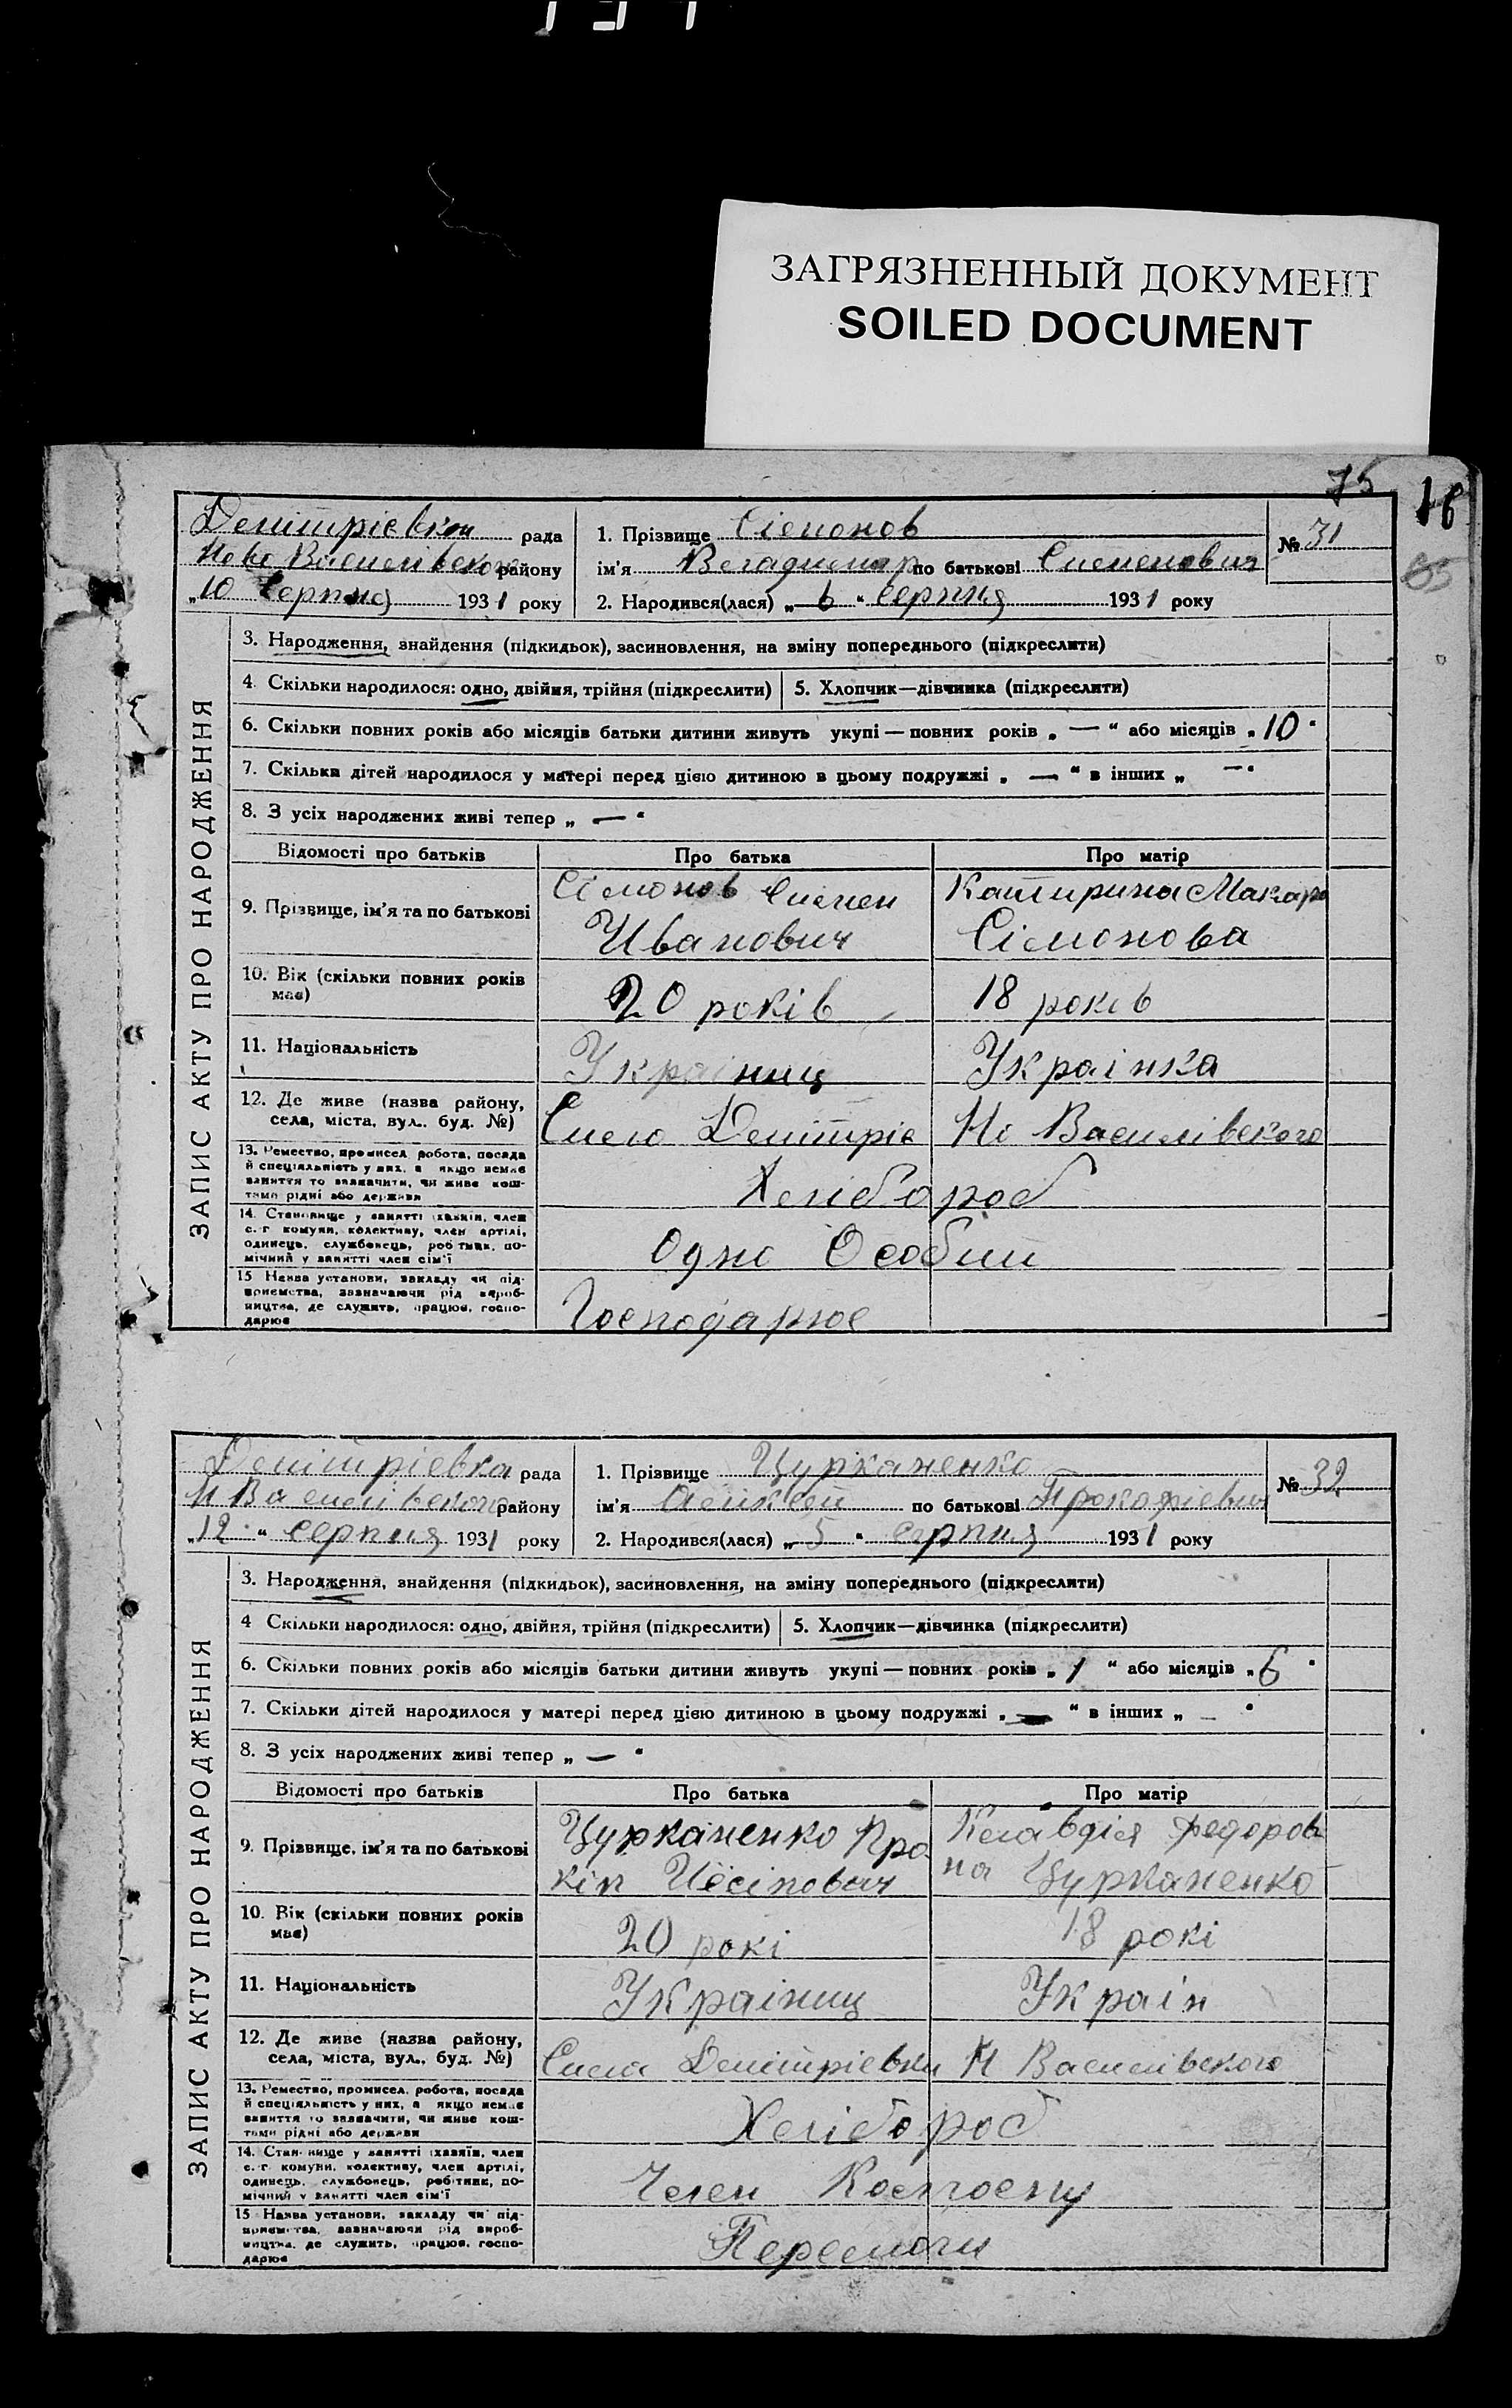 ЗАГРЯЗНЕННЫЙ ДОКУМЕНТ
SOILED DOCUMENT
75 18
Демитріевки рада
Ново Василівского району
„10 Серпня 1931 року
1. Прізвище Сімонов
ім'я Владимир по батькові Сименович
2. Народився(лася) „6“ Серпня 1931 року
№ 31
ЗАПИС АКТУ ПРО НАРОДЖЕННЯ
3. Народження, знайдення (підкидьок), засиновлення, на зміну попереднього (підкреслити)
4. Скільки народилося: одно, двійня, трійня (підкреслити) 5. Хлопчик—дівчинка (підкреслити)
6. Скільки повних років або місяців батьки дитини живуть укупі — повних років „ — “ або місяців „10“
7. Скільки дітей народилося у матері перед цією дитиною в цьому подружжі „ — “ в інших „ — “
8. З усіх народжених живі тепер „ — “
Відомості про батьків Про батька Про матір
9. Прізвище, ім'я та по батькові
Сімонов Симен
Иванович
Катирина Макаро
Сімонова
10. Вік (скільки повних років має)
20 років
18 років
11. Національність
Україниц
Українка
12. Де живе (назва району, села, міста, вул., буд. №)
Сило Демітріє Но Василівского
13. Ремество, промисел, робота, посада й спеціяльність у них, а якщо немає заняття то зазначити, чи живе коштами рідні або держави
Хлібороб
14. Становище у занятті (хазяїн, член с.-г. комуни, колективу, член артілі, одинець, службовець, робітник, помічний у занятті член сім'ї
ОдноОсобий
15 Назва установи, закладу чи підприємства, зазначаючи рід виробництва, де служить, працює, господарює
Господарює
Демітріевка рада
Н Василівского району
„12“ Серпня 1931 року
1. Прізвище Цурканенко
ім'я Аликсей по батькові Прокофіевич
2. Народився(лася) „5“ Серпня 1931 року
№ 32
ЗАПИС АКТУ ПРО НАРОДЖЕННЯ
3. Народження, знайдення (підкидьок), засиновлення, на зміну попереднього (підкреслити)
4 Скільки народилося: одно, двійня, трійня (підкреслити) 5. Хлопчик—дівчинка (підкреслити)
6. Скільки повних років або місяців батьки дитини живуть укупі — повних років „1“ або місяців „6“
7. Скільки дітей народилося у матері перед цією дитиною в цьому подружжі „ — “ в інших „ — “
8. З усіх народжених живі тепер „ — “
Відомості про батьків Про батька Про матір
9. Прізвище, ім'я та по батькові
Цурканенко Про
кіп Иосіпович
Клавдія Федоров
на Цурканенко
10. Вік (скільки повних років має)
20 рокі
18 рокі
11. Національність
Україниц
Україн
12. Де живе (назва району, села, міста, вул., буд. №)
Сила Демітріевки Н Василівского
13. Ремество, промисел, робота, посада й спеціяльність у них, а якщо немає заняття то зазначити, чи живе коштами рідні або держави
Хлібороб
14. Становище у занятті (хазяїн, член с.-г. комуни, колективу, член артілі, одинець, службовець, робітник, помічний у занятті член сім'ї
Член Колгоспу
15 Назва установи, закладу чи підприємства, зазначаючи рід виробництва, де служить, працює, господарює
Перемоги